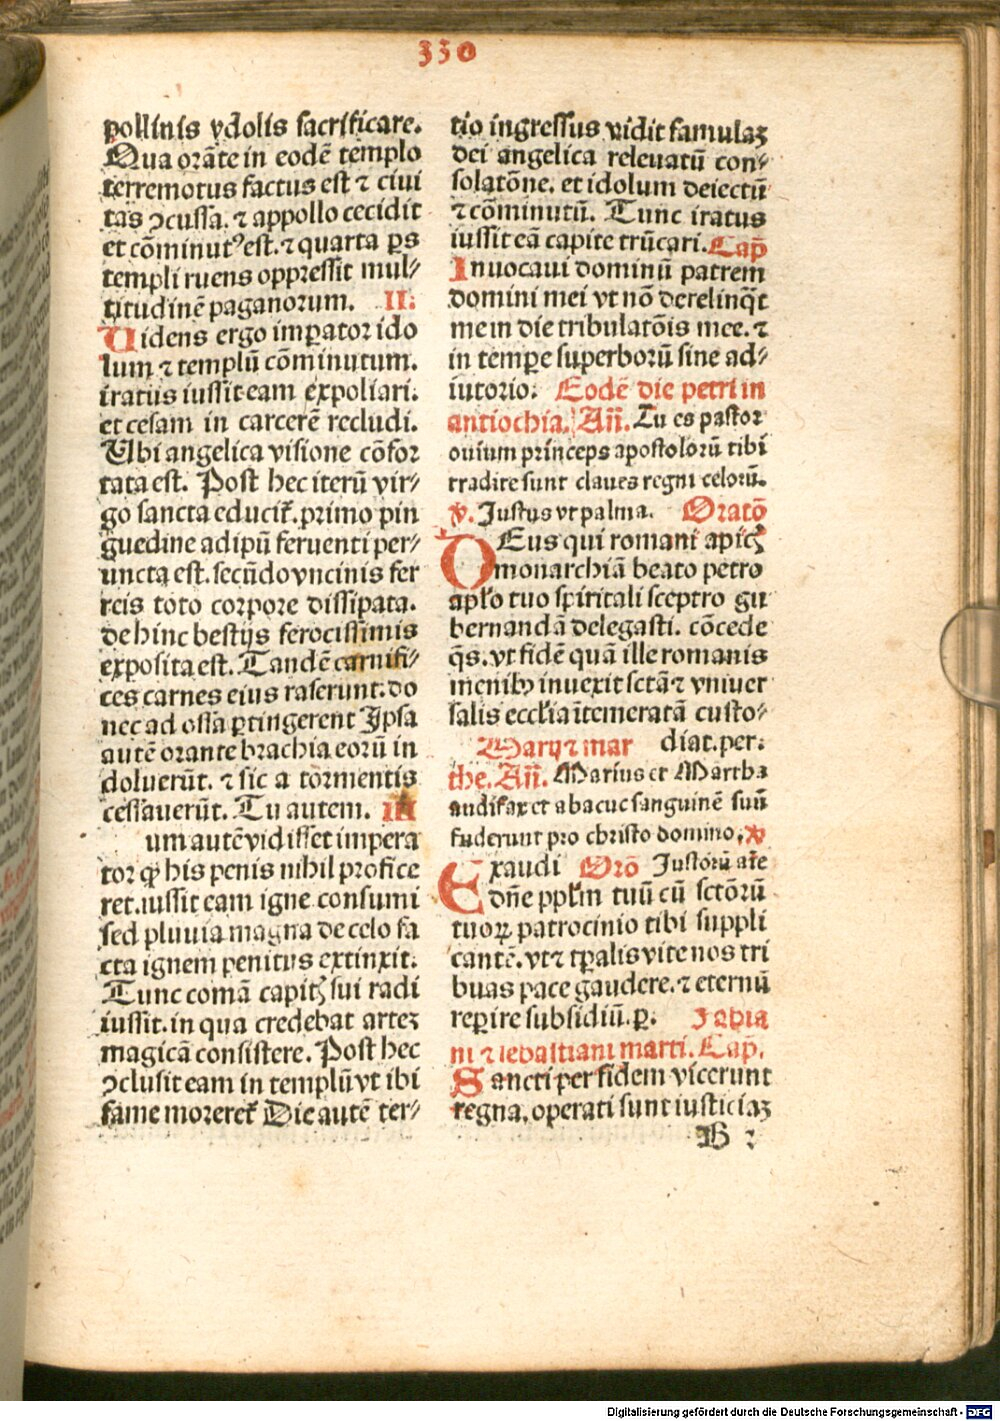 330
pollinis ydolis sacrificare.
Qua orāte in eodē templo
terremotus factus est ⁊ ciui
tas ꝯcussa. ⁊ appollo cecidit
et cōminutꝰest. ⁊ quarta ꝑs
templi ruens oppressit mul⸗
titudinē paganorum. II.
Uidens ergo imꝑator ido
lum ⁊ templū cōminutum.
iratus iussit eam expoliari.
et cesam in carcerē recludi.
Ubi angelica visione cōfor
tata est. Post hec iterū vir⸗
go sancta educit᷑. primo pin
guedine adipū feruenti per⸗
uncta est. secūdo vncinis fer
reis toto corpore dissipata.
de hinc bestijs ferocissimis
exposita est. Tandē carnifi⸗
ces carnes eius raserunt. do
nec ad ossa ꝑtingerent Ipsa
autē orante brachia eorū in
doluerūt. ⁊ sic a tormentis
cessauerūt. Tu autem. III
um autē vidisset impera
tor ꝙ his penis nihil profice
ret. iussit eam igne consumi
sed pluuia magna de celo fa
cta ignem penitus extinxit.
Tunc comā capitꝭ sui radi
iussit. in qua credebat arteꝫ
magicā consistere. Post hec
ꝯclusit eam in templū vt ibi
fame moreret᷑ Die autē ter⸗
tio ingressus vidit famulaꝫ
dei angelica releuatū con⸗
solatōne. et idolum deiectū
⁊ cōminutū. Tunc iratus
iussit eā capite trūcari. Cap̄
Inuocaui dominū patrem
domini mei vt nō derelinq̄t
me in die tribulatōis mee. ⁊
in temꝑe superborū sine ad⸗
iutorio. Eodē die petri in
antiochia. Añ. Tu es pastor
ouium princeps apostolorū tibi
tradite sunt claues regni celorū.
v. Justus vt palma. Oratō
DEus qui romani apicꝭ
monarchiā beato petro
apl̄o tuo spiritali sceptro gu
bernandā delegasti. cōcede
q̄s. vt fidē quā ille romanis
menibꝫ inuexit sctā ⁊ vniuer
salis eccl̄ia ītemeratā custo⸗
diat. per.
Marij ⁊ mar
the. Añ. Marius et Martha
audifax et abacuc sanguinē suū
fuderunt pro christo domino. v
Exaudi Orō Justorū aīe
dn̄e ppl̄m tuū cū sctōrū
tuoꝝ patrocinio tibi suppli
cantē. vt ⁊ tꝑalis vite nos tri
buas pace gaudere. ⁊ eternū
reꝑire subsidiū. ꝑ. Fabia
ni ⁊ sebastiani marti. Cap̄.
Sancti per fidem vicerunt
regna. operati sunt iusticiaꝫ
B 2
Digitalisierung gefördert durch die Deutsche Forschungsgemeinschaft - DFG